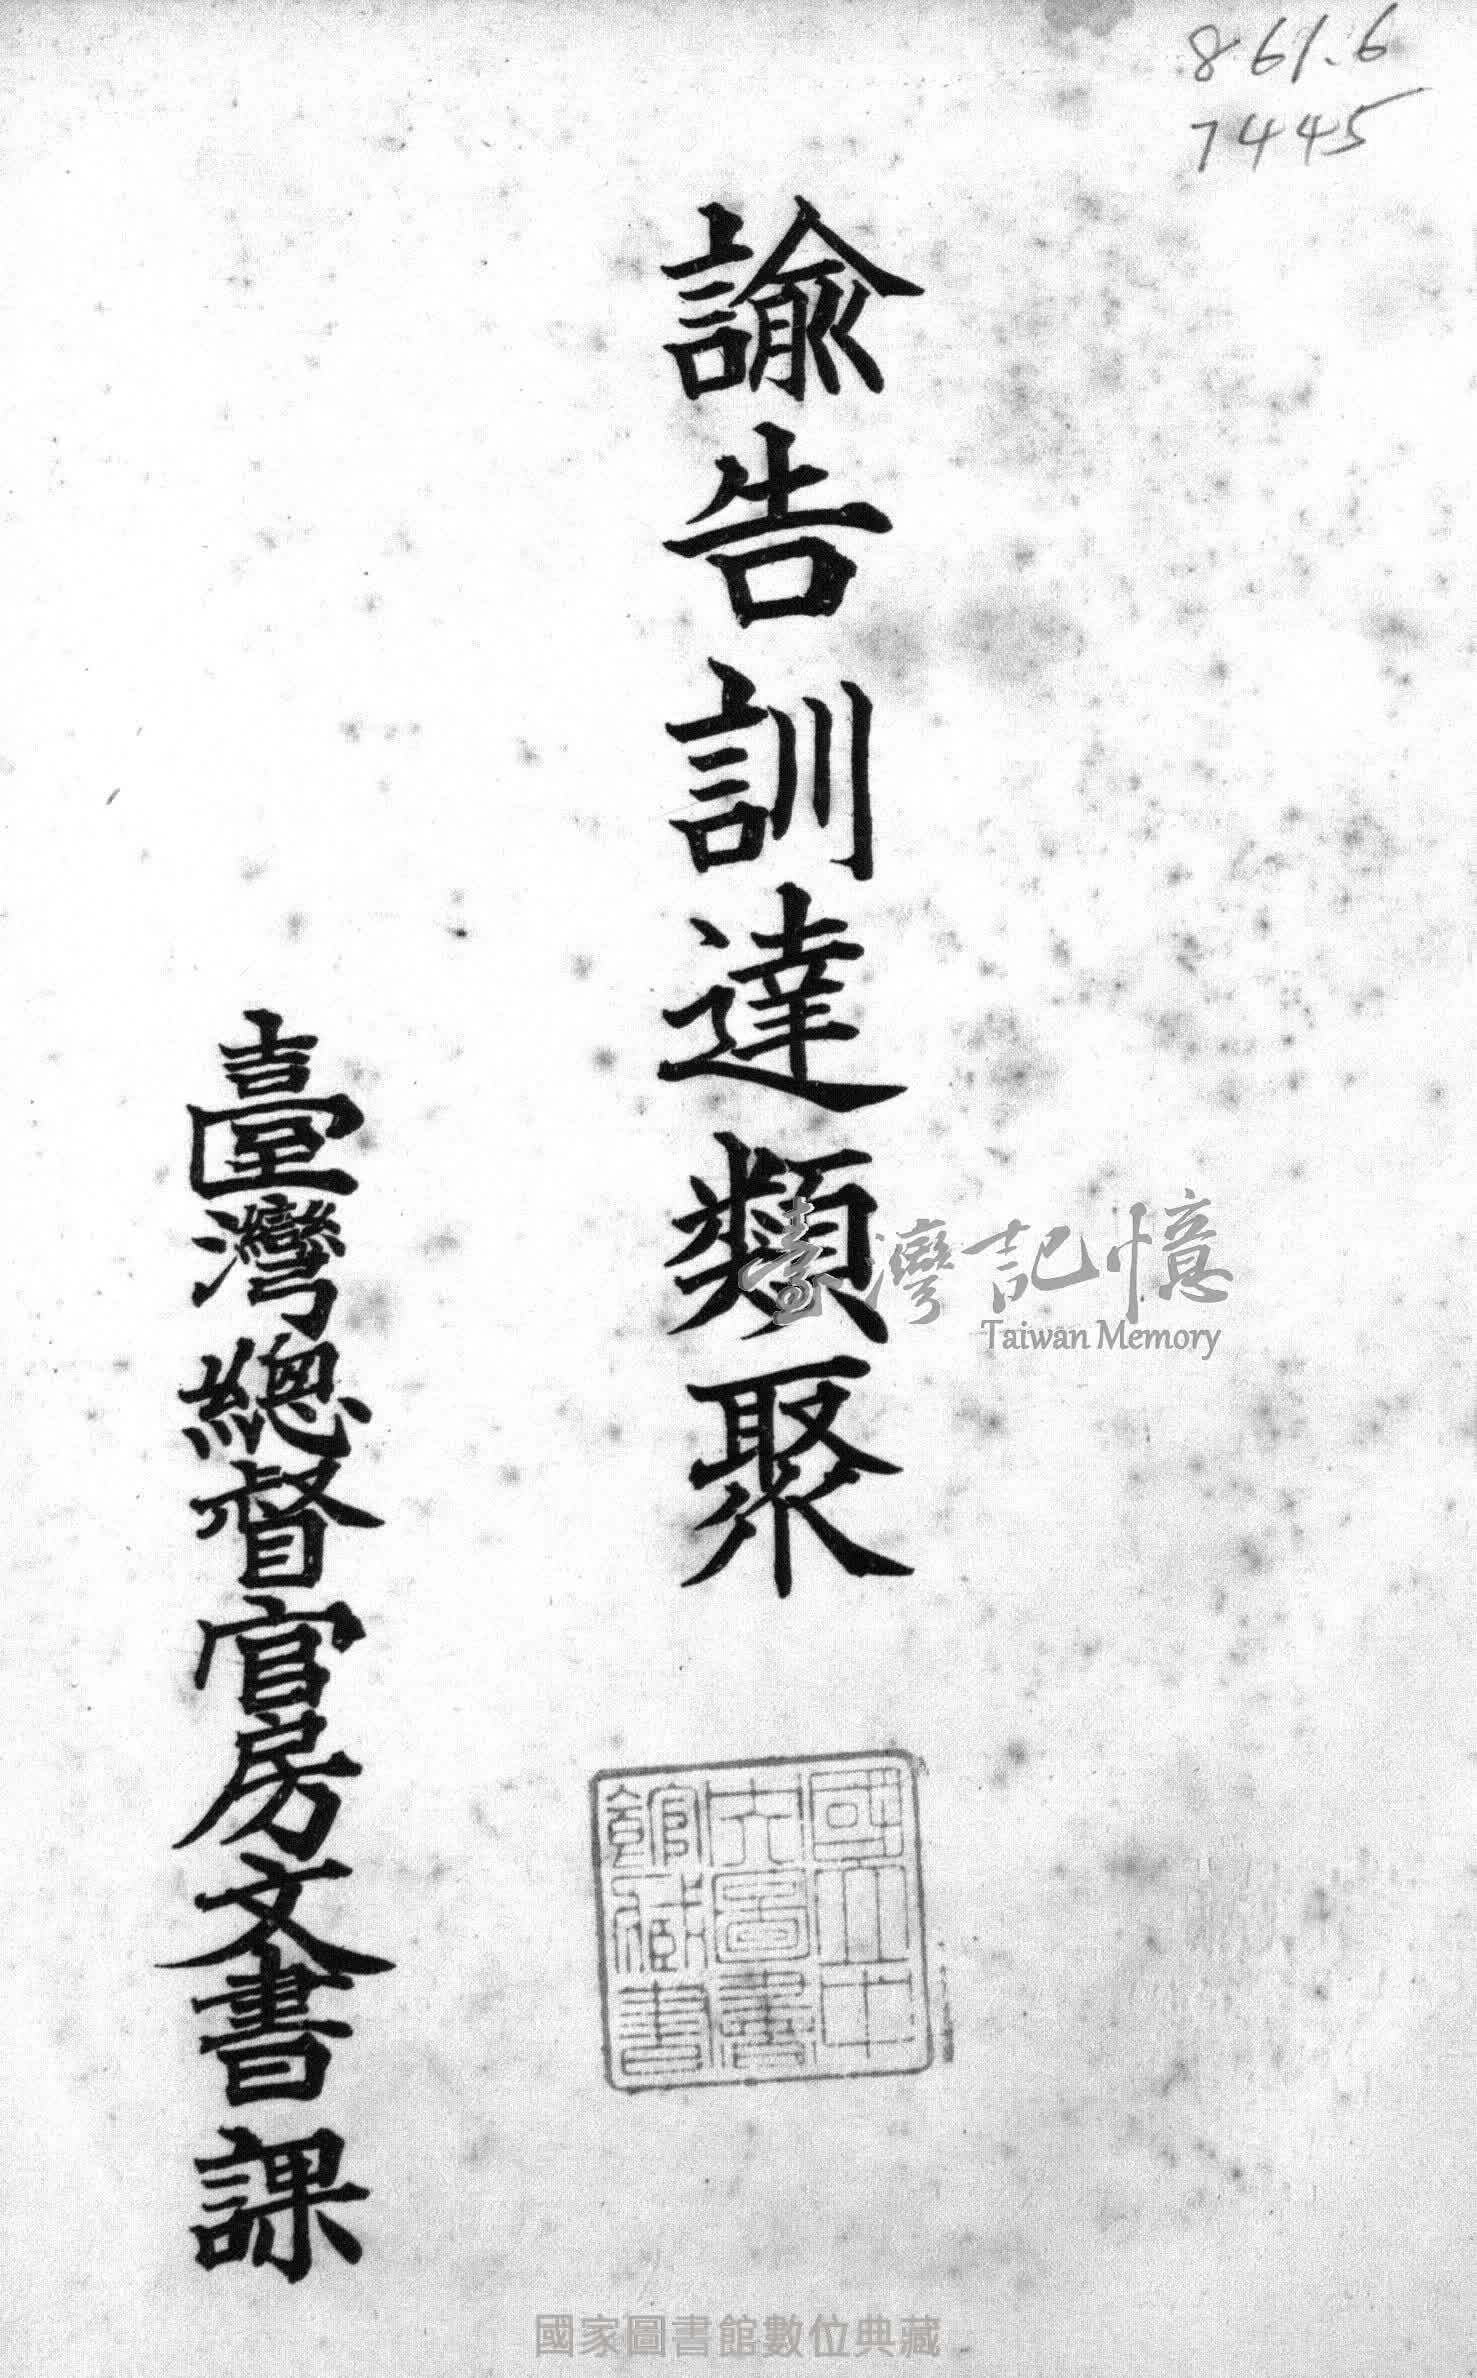 861.6
7445
諭告訓達類聚
臺灣總督官房文書課
臺灣記憶
Taiwan Memory
國立中央圖書館藏書
國家圖書館數位典藏